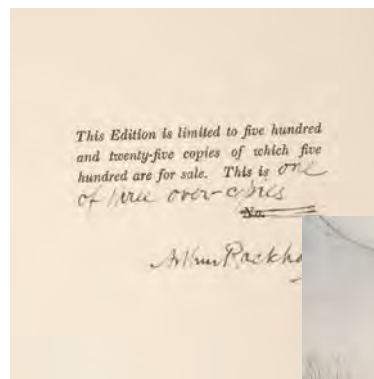 This Edition is limited to five hundred
and twenty-five copies of which five
hundred are for sale. This is one
of three over-copies
No.
Arthur Rackha